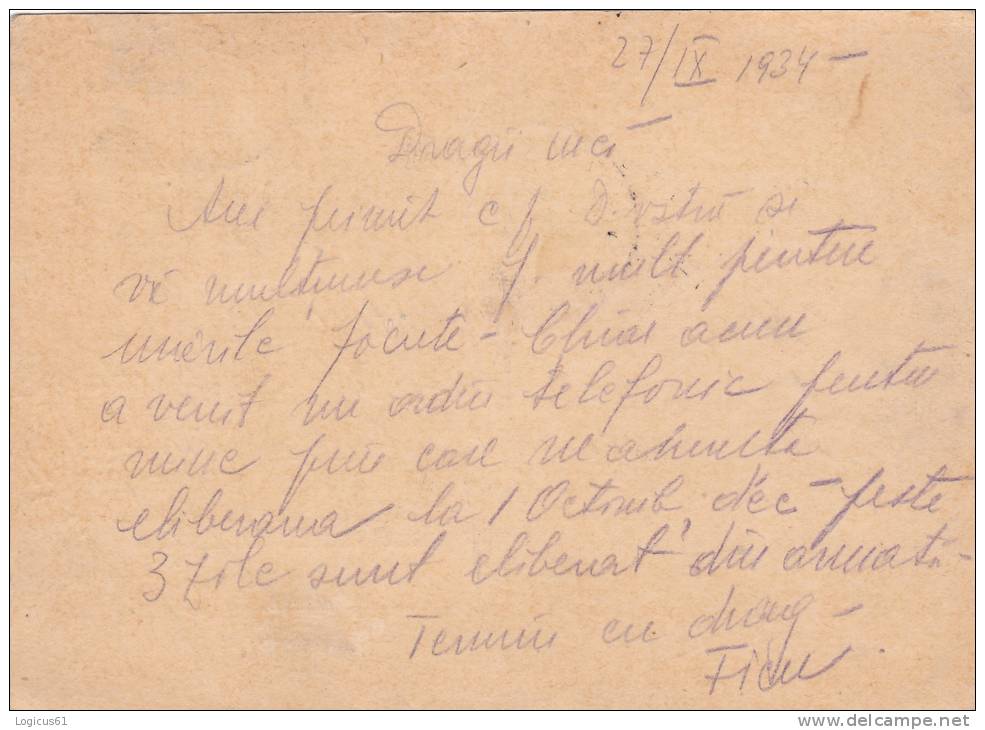 27/IX 1934 –
Dragii mei –
Am primit c. p. D. vstră și
vă mulțumesc f. mult pentru
urările făcute – Chiar acum
a venit un ordin telefonic pentru
mine prin care ne anunță
eliberarea la 1 Octomb deci – peste
3 zile sunt eliberat din armată –
Termin cu drag –
Ticu
Logicus61
www.delcampe.net